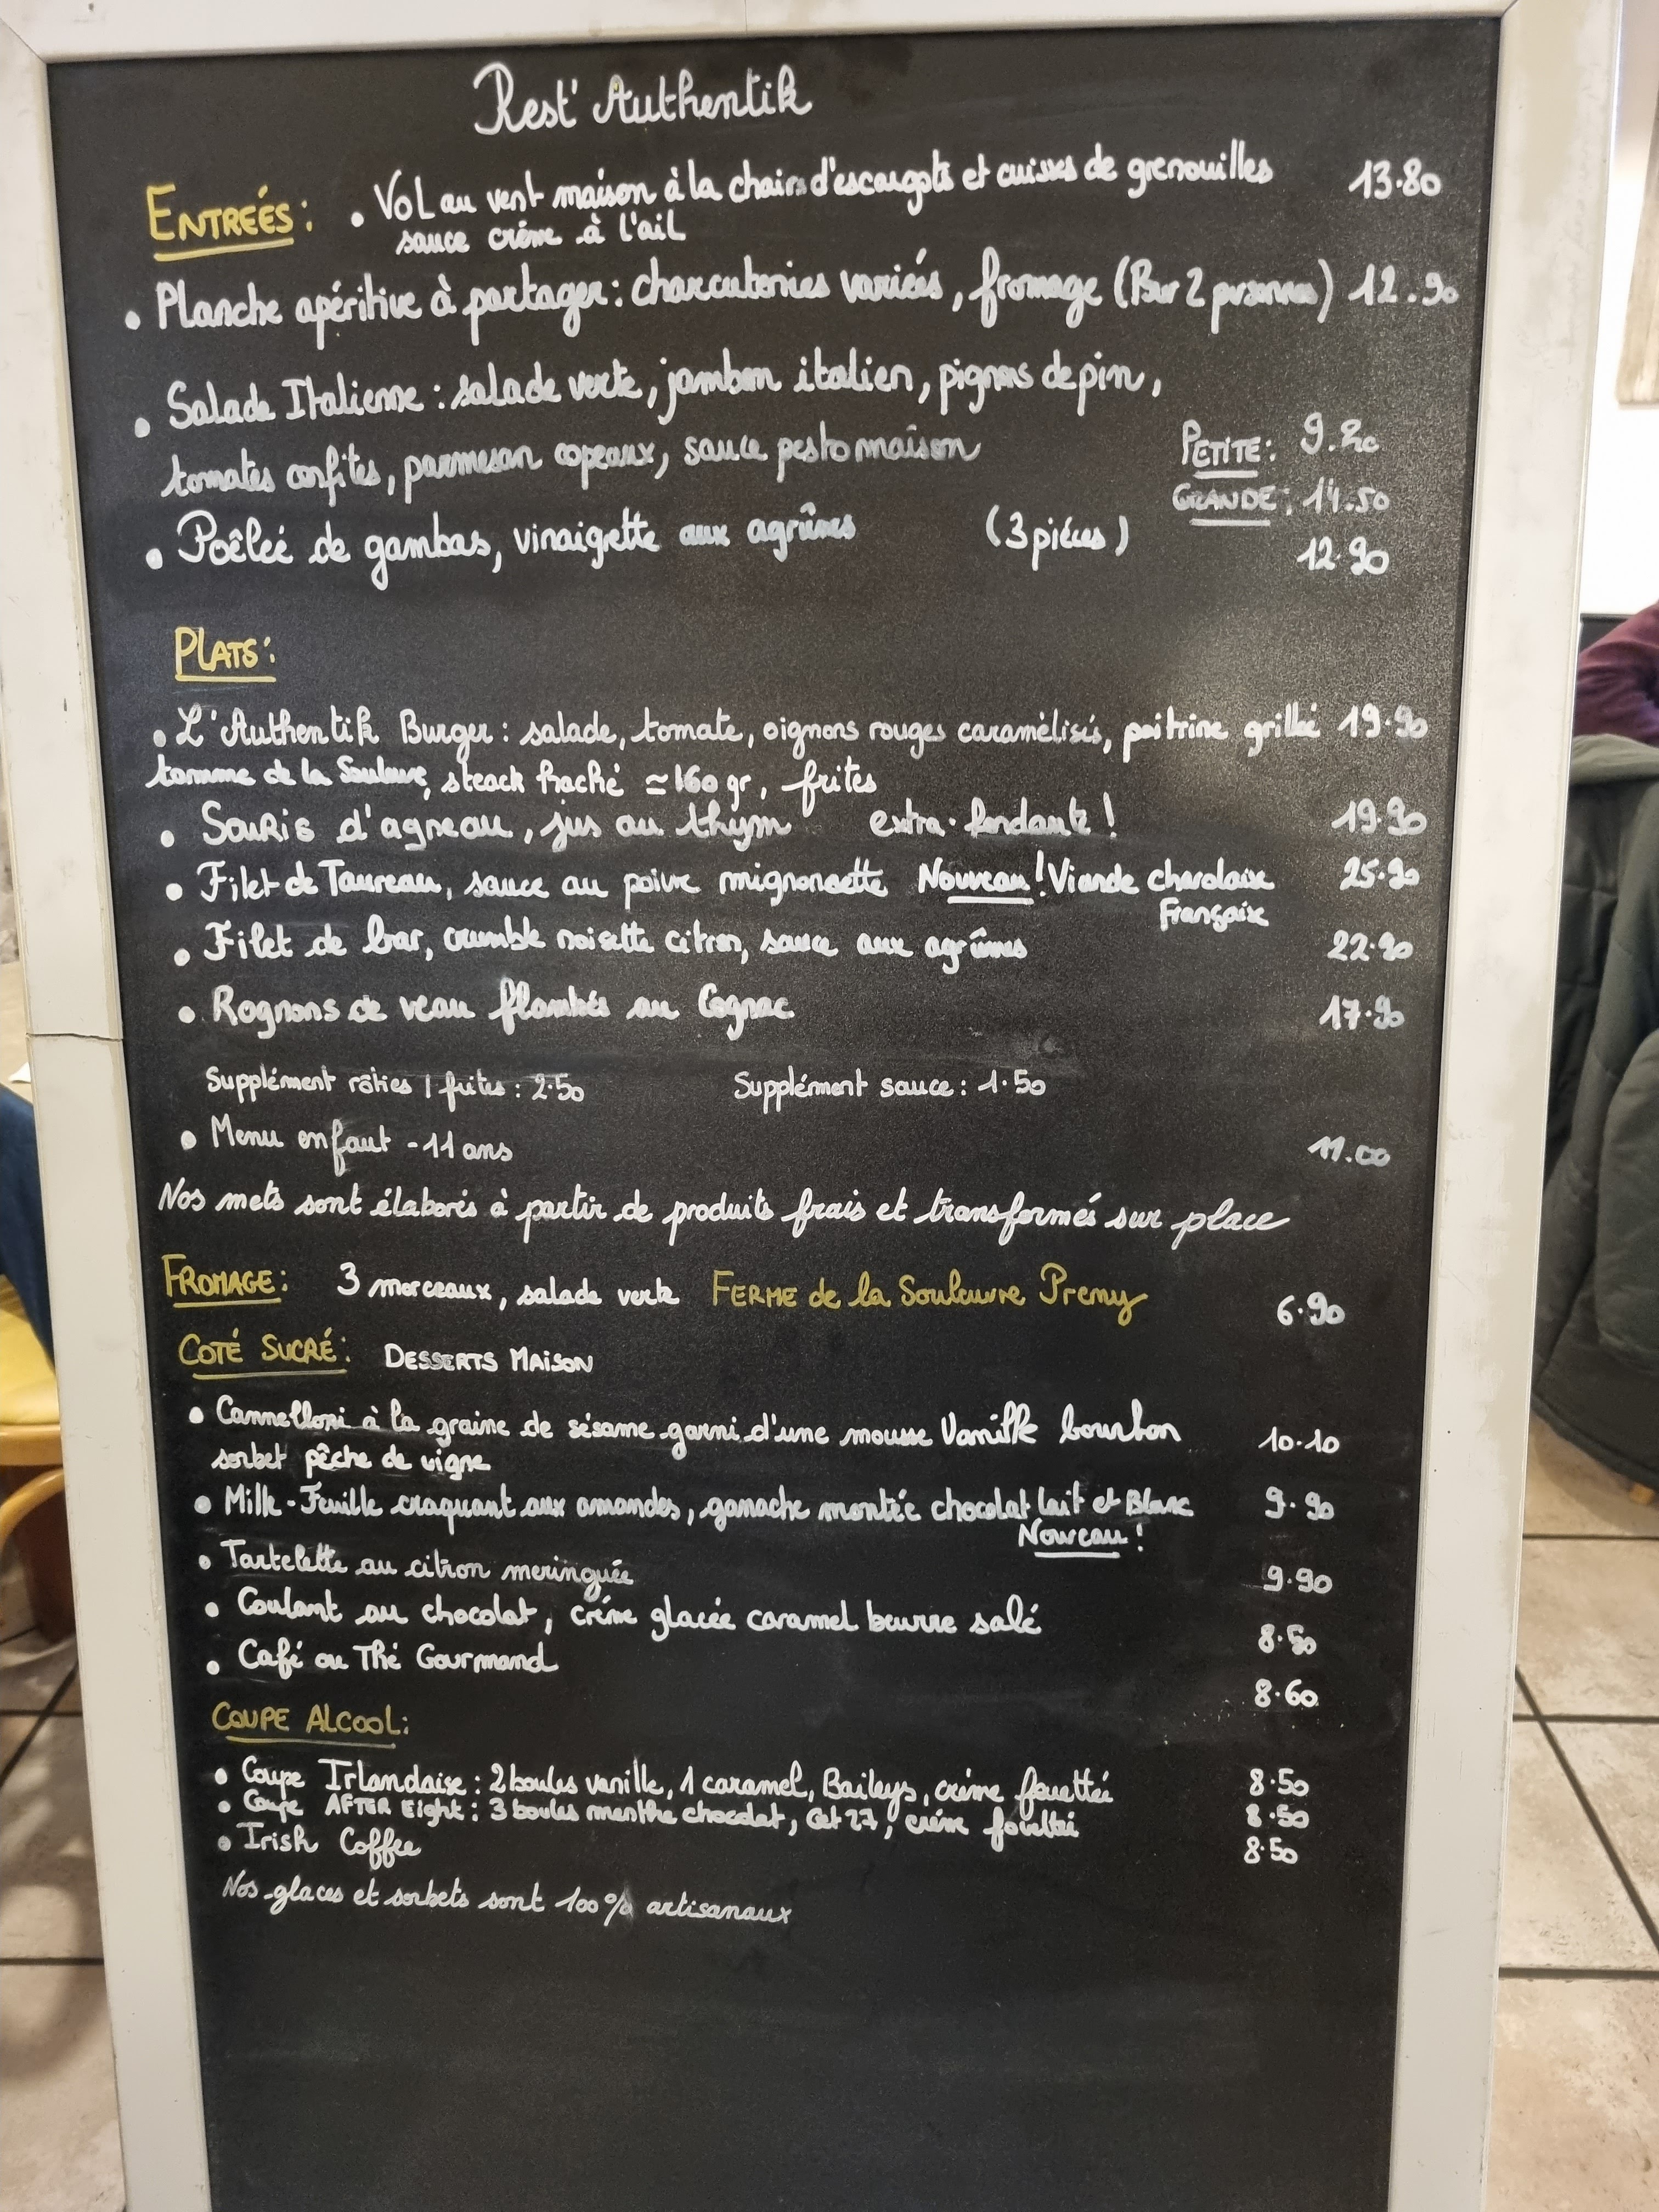 Rest' Authentik
ENTREÉS: • Vol au vent maison à la chair d'escargots et cuisses de grenouilles 13.80
sauce crème à l'ail
• Planche apéritive à partager: charcuteries variées, fromage (Pour 2 personnes) 12.90
• Salade Italienne : salade verte, jambon italien, pignons de pin,
tomates confites, parmesan copeaux, sauce pesto maison PETITE: 9.20
GRANDE: 14.50
• Poêleé de gambas, vinaigrette aux agrûmes (3 piéces) 12.90
PLATS:
• L'Authentik Burger : salade, tomate, oignons rouges caramèlisés, poitrine grillée 19.90
tomme de la Souleuvre, steack haché ≃ 160 gr, frites
• Souris d'agneau, jus au thym extra-fondante ! 19.90
• Filet de Taureau, sauce au poivre mignonette Nouveau ! Viande charolaise 25.90
Française
• Filet de bar, crumble noisette citron, sauce aux agrûmes 22.90
• Rognons de veau flambés au Cognac 17.90
Supplément röties / frites : 2.50 Supplément sauce : 1.50
• Menu enfant - 11 ans 11.00
Nos mets sont élaborés à partir de produits frais et transformés sur place
FROMAGE: 3 morceaux, salade verte FERME de la Souleuvre Premy 6.90
COTÉ SUCRÉ: DESSERTS MAISON
• Cannelloni à la graine de sésame garni d'une mousse Vanille bourbon 10.10
sorbet pêche de vigne
• Mille-Feuille craquant aux amandes, ganache montée chocolat lait et Blanc 9.90
Nouveau !
• Tartelette au citron meringuée 9.90
• Coulant au chocolat, crème glacée caramel beurre salé 8.50
• Café ou Thé Gourmand 8.60
COUPE ALCOOL:
• Coupe Irlandaise : 2 boules vanille, 1 caramel, Baileys, crème fouettée 8.50
• Coupe AFTER Eight : 3 boules menthe chocolat, Get 27, crème fouettée 8.50
• Irish Coffee 8.50
Nos glaces et sorbets sont 100 % artisanaux